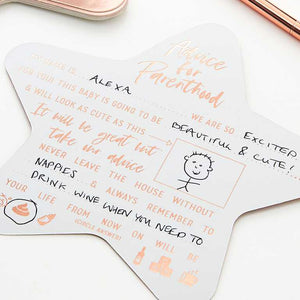 Advice
for
Parenthood
ALEXA WE ARE SO EXCITED
FOR YOU! THIS BABY IS GOING TO BE BEAUTIFUL & CUTE!
& WILL LOOK AS CUTE AS THIS
It will be great but
take my advice
NEVER LEAVE THE HOUSE WITHOUT
NAPPIES & ALWAYS REMEMBER TO
DRINK WINE WHEN YOU NEED TO
YOUR LIFE FROM NOW ON WILL BE
(CIRCLE ANSWER)